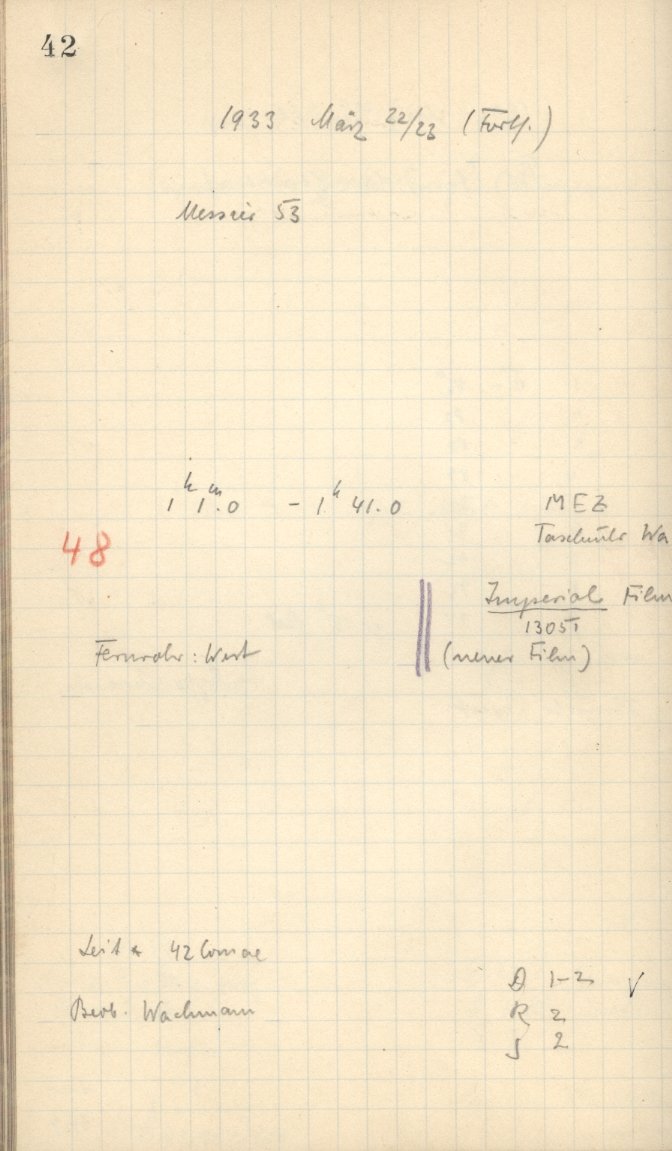 42
1933 März 22/23 (Forts.)
Messier 53
1ʰ 1ᵐ.0 – 1ʰ 41.0 MEZ
Taschenuhr Wa
48
Imperial Film
1305T
Fernrohr: West (neuer Film)
Leit * 42 Comae
1-2 √
Beob. Wachmann R 2
S 2